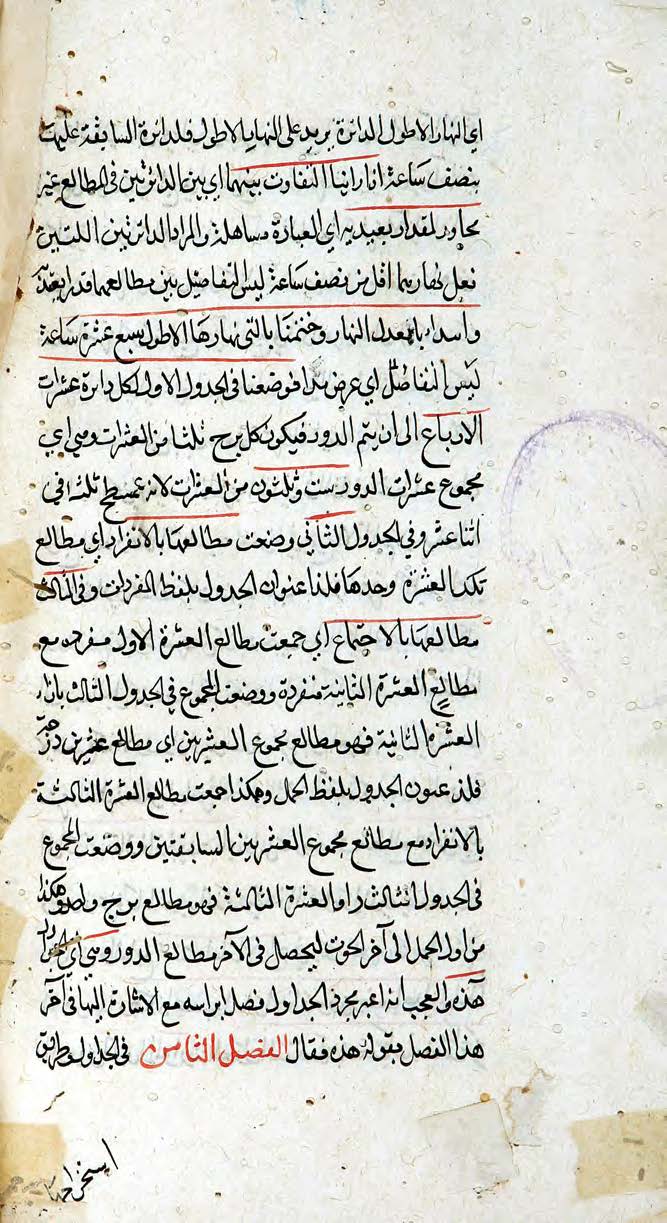 اي النهار الاطول الدائرة يزيد على النهار الاطول فلدائرة السابقة عليها
بنصف ساعة اذا راينا التفاوت بينهما اي بين الدائرتين في المطالع غير
مجاوز لمقدار يعبد به اي العبارة مساهلة والمراد الدائرتين اللتين
نهاريهما اقل من نصف ساعة ليس التفاضيل بين مطالعهما قدر يعتد
وابتداء بالمعدل النهار وختمنا بالتي نهارها الاطول سبع عشرة ساعة
ليس التفاضل اي عرض فوضعنا في الجدول الاول لكل دائرة عشرات
الارباع الى ان يتم الدور فيكون كل برج ثلثا من العشرات وهي اي
مجموع عشرات الدور ست وثلثون من العشرات لانه مسطح ثلثه في
اثنا عشر وفي الجدول الثاني وضعت مطالعها بالانفراد اي مطالع
تلك العشرة وحدها فلذا عنوان الجدول بلفظ المفردات وفي الثالث
مطالعها بالاجتماع اي جمعت مطالع العشرة الاول مفرده مع
مطالع العشرة الثانية منفردة ووضعت المجموع في الجدول الثالث بازاء
العشرة الثانية فهو مطالع مجموع العشرين اي مطالع عشرين درجة
فلذ عنون الجدول بلفظ الحمل وهكذا جمعت مطالع العشرة الثالثة
بالانفراد مع مطالع مجموع العشرين السابقتين ووضعت المجموع
في الجدول الثالث العشرة الثالثة فهو مطالع برج واحد وهكذا
من اول الحمل الى آخر الحوت ليحصل في الآخر مطالع الدور وهي اي الجداول
هذه والعجب انه اعبر مجرد الجداول فصلا براسه مع الاشارة اليها في آخر
هذا الفصل بقوله هذه فقال الفصل الثامن في الجداول وطريق